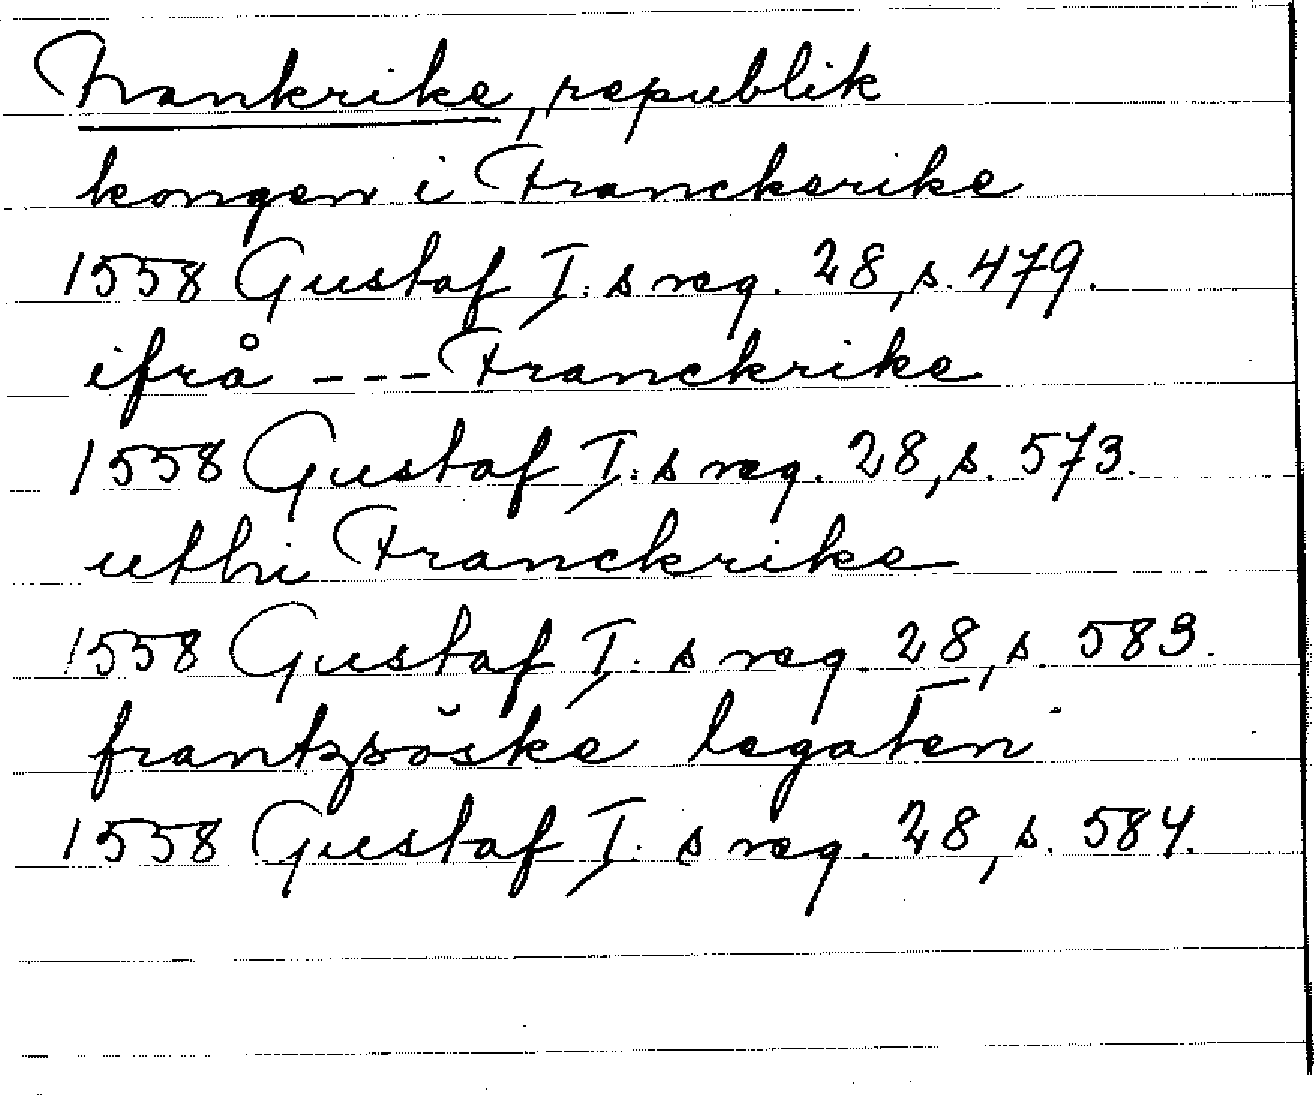 Frankrike, republik
kongen i Franckerike
1558 Gustaf I:s reg. 28, s. 479.
ifrå --- Franckrike
1558 Gustaf I:s reg. 28, s. 573.
uthi Franckrike
1558 Gustaf I:s reg. 28, s. 583.
frantzsöske legaten
1558 Gustaf I:s reg. 28, s. 584.